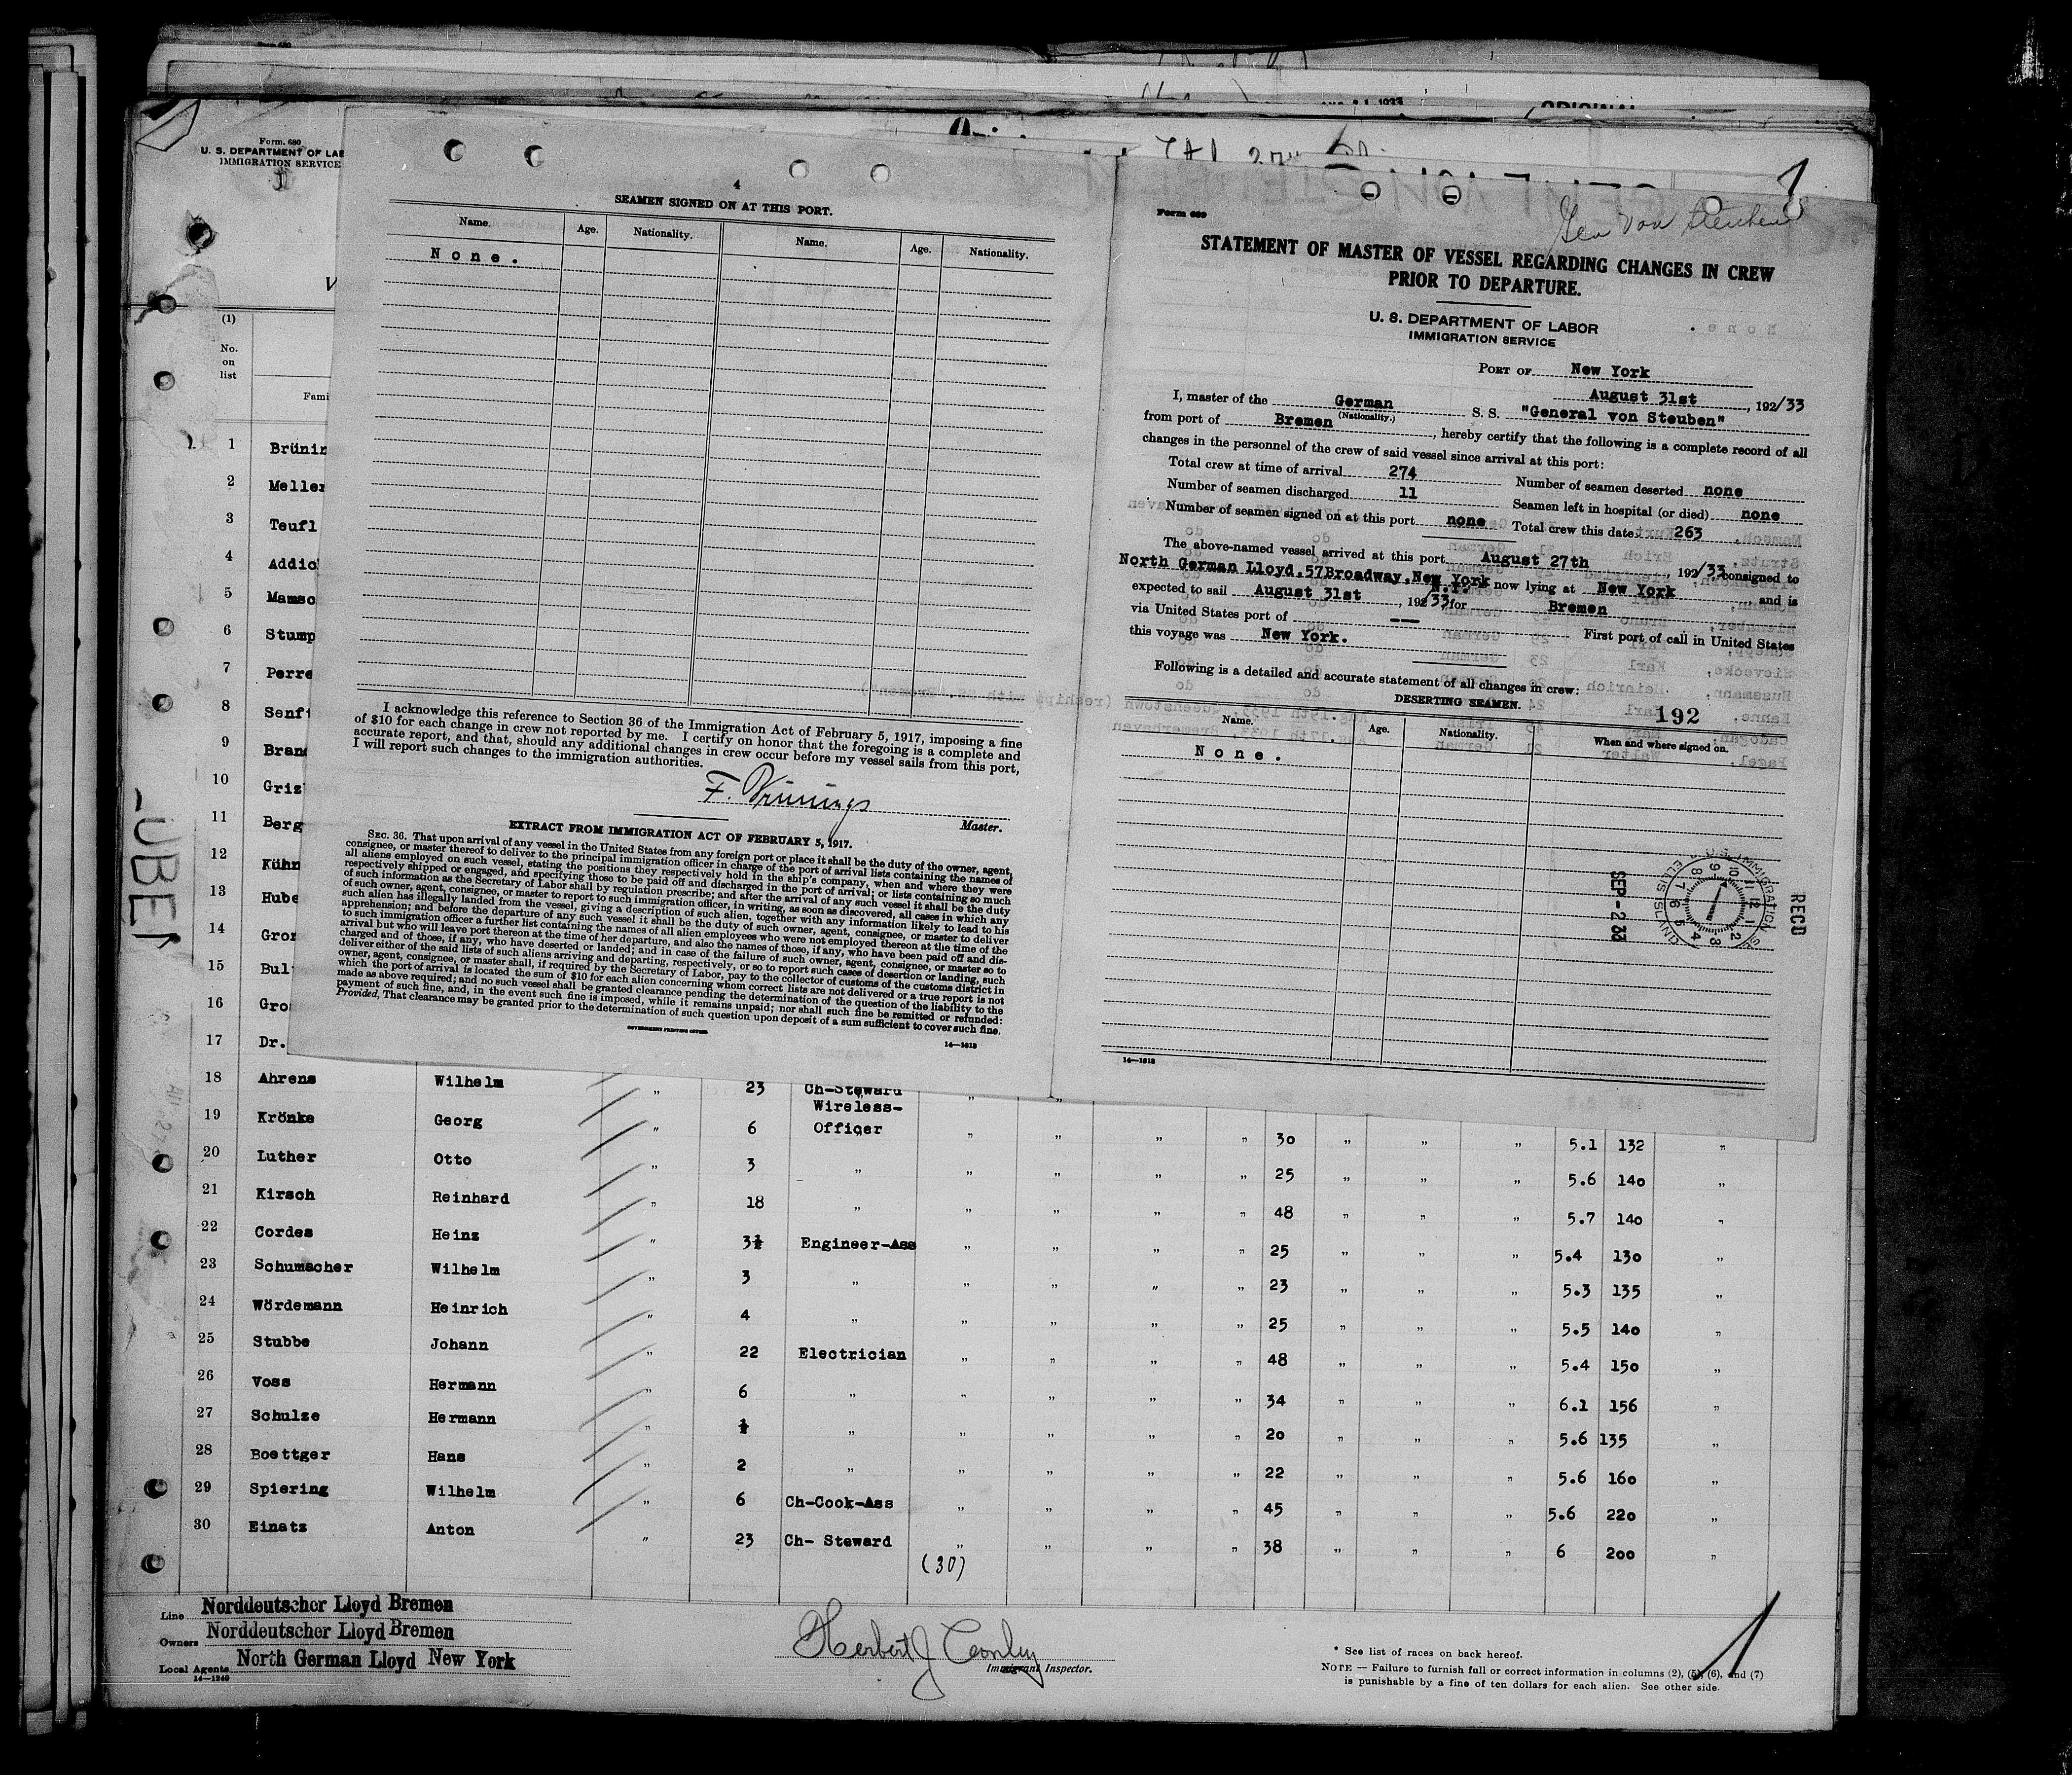 Form 680
U. S. DEPARTMENT OF LAB
IMMIGRATION SERVICE
(1)
No.
on
list
Fami
1 Brünin
2 Meller
3 Teufl
4 Addic
5 Mamsc
6 Stump
7 Perre
8 Senft
9 Brand
10 Gris
11 Berg
12 Kühn
13 Hube
14 Gron
15 Bul
16 Gro
17 Dr.
4
SEAMEN SIGNED ON AT THIS PORT.
Name. Age. Nationality. Name. Age. Nationality.
None.
I acknowledge this reference to Section 36 of the Immigration Act of February 5, 1917, imposing a fine
of $10 for each change in crew not reported by me. I certify on honor that the foregoing is a complete and
accurate report, and that, should any additional changes in crew occur before my vessel sails from this port,
I will report such changes to the immigration authorities.
Master.
EXTRACT FROM IMMIGRATION ACT OF FEBRUARY 5, 1917.
SEC. 36. That upon arrival of any vessel in the United States from any foreign port or place it shall be the duty of the owner, agent,
consignee, or master thereof to deliver to the principal immigration officer in charge of the port of arrival lists containing the names of
all aliens employed on such vessel, stating the positions they respectively hold in the ship's company, when and where they were
respectively shipped or engaged, and specifying those to be paid off and discharged in the port of arrival; or lists containing so much
of such information as the Secretary of Labor shall by regulation prescribe; and after the arrival of any such vessel it shall be the duty
of such owner, agent, consignee, or master to report to such immigration officer, in writing, as soon as discovered, all cases in which any
such alien has illegally landed from the vessel, giving a description of such alien, together with any information likely to lead to his
apprehension; and before the departure of any such vessel it shall be the duty of such owner, agent, consignee, or master to deliver
to such immigration officer a further list containing the names of all alien employees who were not employed thereon at the time of the
arrival but who will leave port thereon at the time of her departure, and also the names of those, if any, who have been paid off and dis-
charged and of those, if any, who have deserted or landed; and in case of the failure of such owner, agent, consignee, or master so to
deliver either of the said lists of such aliens arriving and departing, respectively, or so to report such cases of desertion or landing, such
owner, agent, consignee, or master shall, if required by the Secretary of Labor, pay to the collector of customs of the customs district in
which the port of arrival is located the sum of $10 for each alien concerning whom correct lists are not delivered or a true report is not
made as above required; and no such vessel shall be granted clearance pending the determination of the question of the liability to the
payment of such fine, and, in the event such fine is imposed, while it remains unpaid; nor shall such fine be remitted or refunded:
Provided, That clearance may be granted prior to the determination of such question upon deposit of a sum sufficient to cover such fine.
GOVERNMENT PRINTING OFFICE
14—1613
Form 689
Gen von Steuben
STATEMENT OF MASTER OF VESSEL REGARDING CHANGES IN CREW
PRIOR TO DEPARTURE.
U. S. DEPARTMENT OF LABOR
IMMIGRATION SERVICE
PORT OF New York
August 31st, 192/33
I, master of the German S. S. "General von Steuben"
(Nationality.)
from port of Bremen, hereby certify that the following is a complete record of all
changes in the personnel of the crew of said vessel since arrival at this port:
Total crew at time of arrival 274 Number of seamen deserted none
Number of seamen discharged 11 Seamen left in hospital (or died) none
Number of seamen signed on at this port none Total crew this date 263
The above-named vessel arrived at this port August 27th, 192/33 consigned to
North German Lloyd.57Broadway.New York N.Y. now lying at New York and is
expected to sail August 31st, 192/33 for Bremen
via United States port of — First port of call in United States
this voyage was New York.
Following is a detailed and accurate statement of all changes in crew:
DESERTING SEAMEN. 192
Name. Age. Nationality. When and where signed on.
None.
REC'D
U. S. IMMIGRATION
ELLIS ISLAND
SEP - 2 33
14—1613
18 Ahrens Wilhelm " 23 Ch-Steward " "
19 Krönke Georg " 6 Wireless-Officer " " " " 30 " " " 5.1 132 "
20 Luther Otto " 3 " " " " 25 " " " 5.6 140 "
21 Kirsch Reinhard " 18 " " " " " 48 " " " 5.7 140 "
22 Cordes Heinz " 3½ Engineer-Ass " " " " 25 " " " 5.4 130 "
23 Schumacher Wilhelm " 3 " " " " " 23 " " " 5.3 135 "
24 Wördemann Heinrich " 4 " " " " " 25 " " " 5.5 140 "
25 Stubbe Johann " 22 Electrician " " " " 48 " " " 5.4 150 "
26 Voss Hermann " 6 " " " " " 34 " " " 6.1 156 "
27 Schulze Hermann " ½ " " " " " 20 " " " 5.6 135 "
28 Boettger Hans " 2 " " " " " 22 " " " 5.6 160 "
29 Spiering Wilhelm " 6 Ch-Cook-Ass " " " " 45 " " " 5.6 220 "
30 Einatz Anton " 23 Ch- Steward " " " " 38 " " " 6 200 "
(30)
Line Norddeutscher Lloyd Bremen
Owners Norddeutscher Lloyd Bremen
Local Agents North German Lloyd New York
14—1240
Immigrant Inspector.
* See list of races on back hereof.
NOTE — Failure to furnish full or correct information in columns (2), (5), (6), and (7)
is punishable by a fine of ten dollars for each alien. See other side.